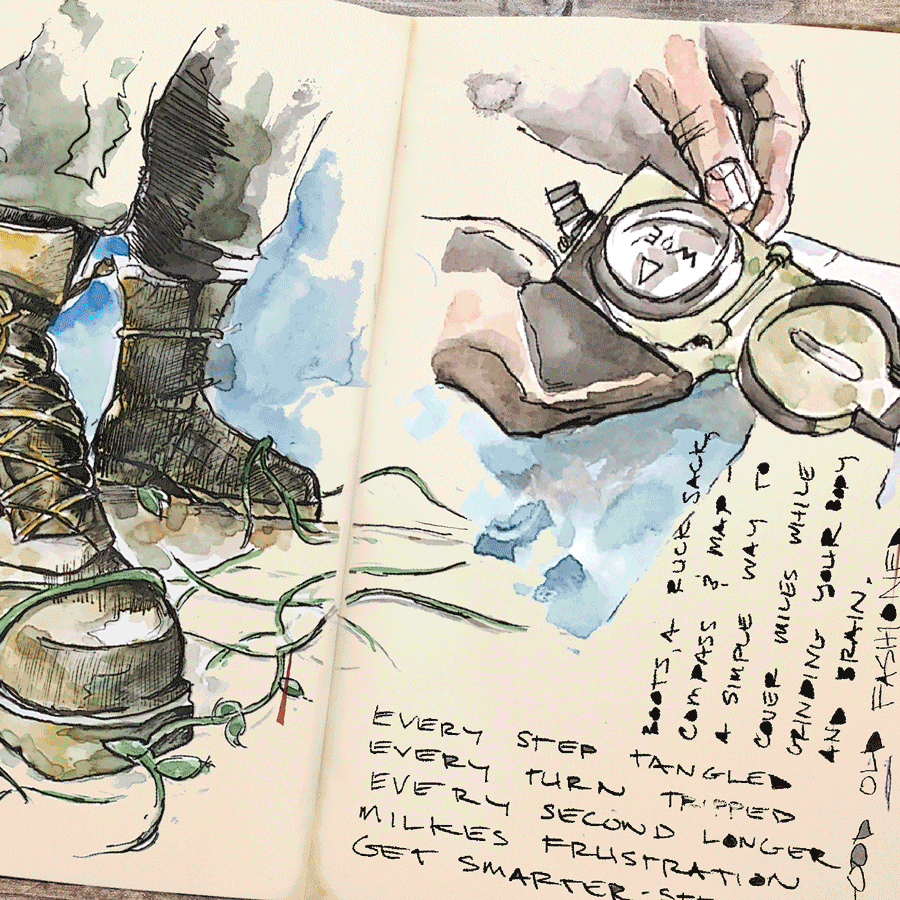 BOOTS, A RUCK SACK,
COMPASS & MAP —
A SIMPLE WAY TO
COVER MILES WHILE
GRINDING YOUR BODY
AND BRAIN.
OLD FASHIONED
EVERY STEP TANGLED
EVERY TURN TRIPPED
EVERY SECOND LONGER
MILKES FRUSTRATION
GET SMARTER